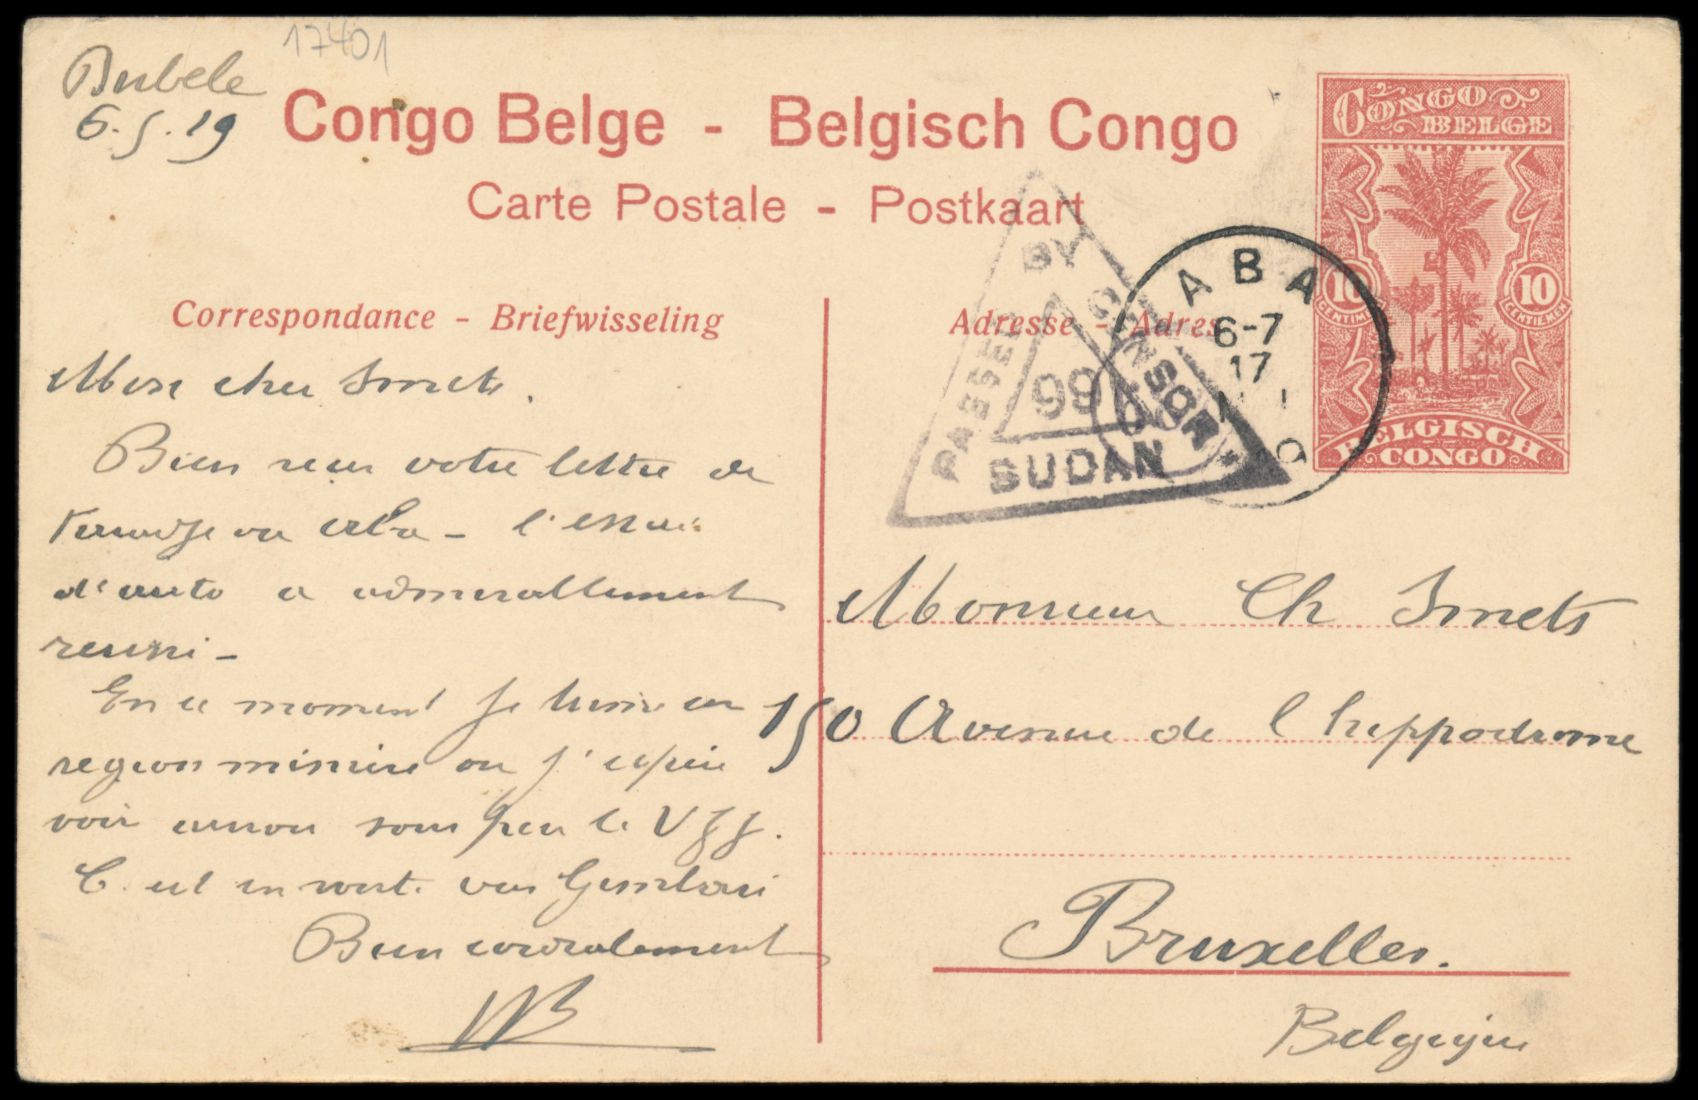 17401
6.5.19
Congo Belge - Belgisch Congo
Carte Postale - Postkaart
CONGO
BELGE
10 10
CENTIMES CENTIEMEN
BELGISCH
CONGO
PASSED BY CENSOR
99
SUDAN
ABA
6-7
17
Correspondance - Briefwisseling
Adresse - Adres
Mon cher Smets.
Bien reçu votre lettre de
Aba - l'essai
d'auto a admirablement
reussi -
En ce moment je suis en
region miniere ou j'espère
voir sous peu le
C. est en route
Bien cordialement
Monsieur Ch Smets
150 Avenue de l hippodrome
Bruxelles.
Belgique